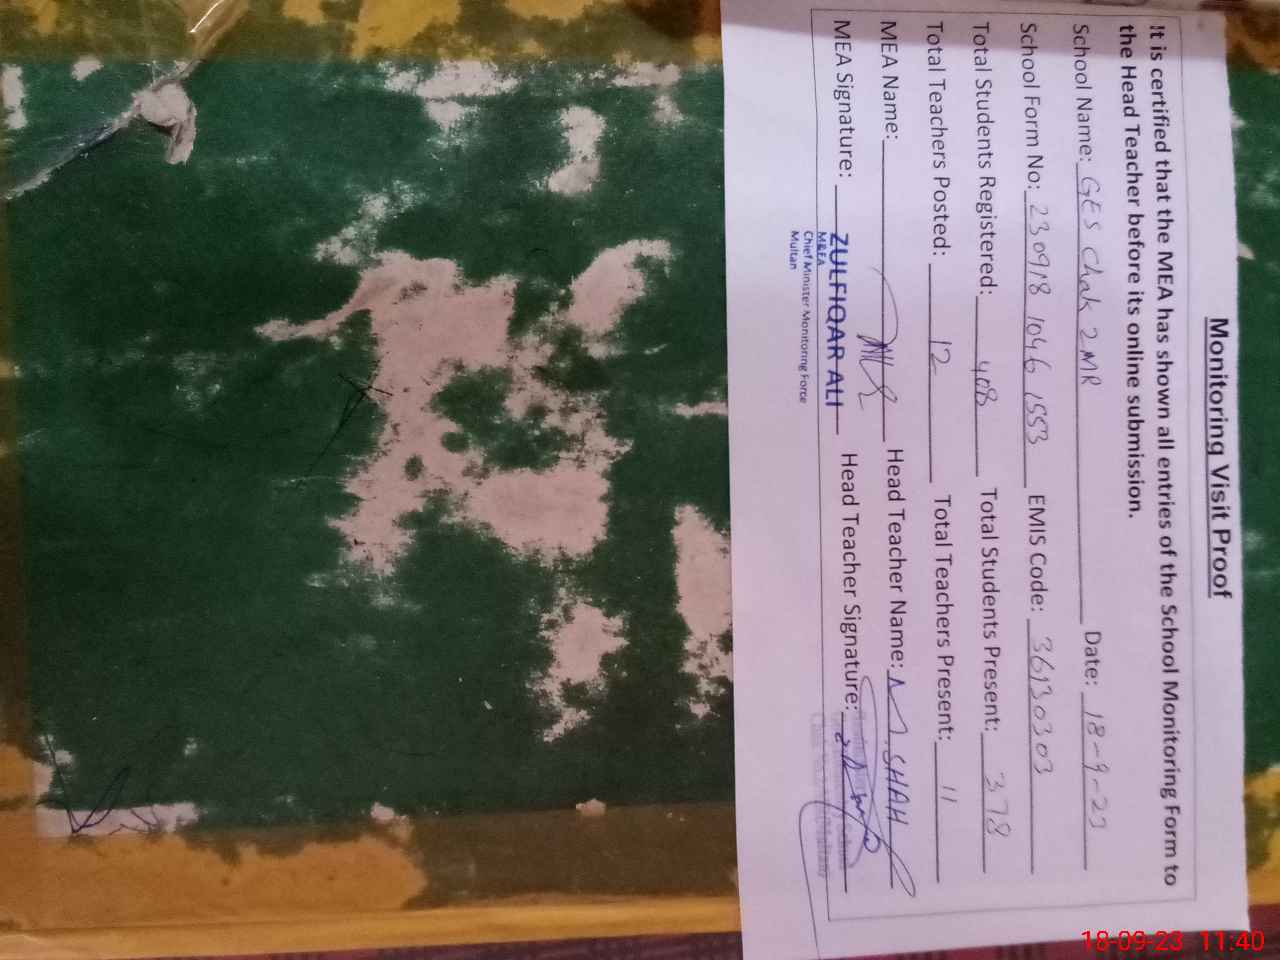 Monitoring Visit Proof
It is certified that the MEA has shown all entries of the School Monitoring Form to
the Head Teacher before its online submission.
School Name: GES Chak 2 MR Date: 18-9-23
School Form No: 230918 1046 1553 EMIS Code: 36130303
Total Students Registered: 408 Total Students Present: 378
Total Teachers Posted: 12 Total Teachers Present: 11
MEA Name: Head Teacher Name: M. SHAH
MEA Signature: ZULFIQAR ALI Head Teacher Signature:
M&EA
Chief Minister Monitoring Force
Multan
18-09-23 11:40